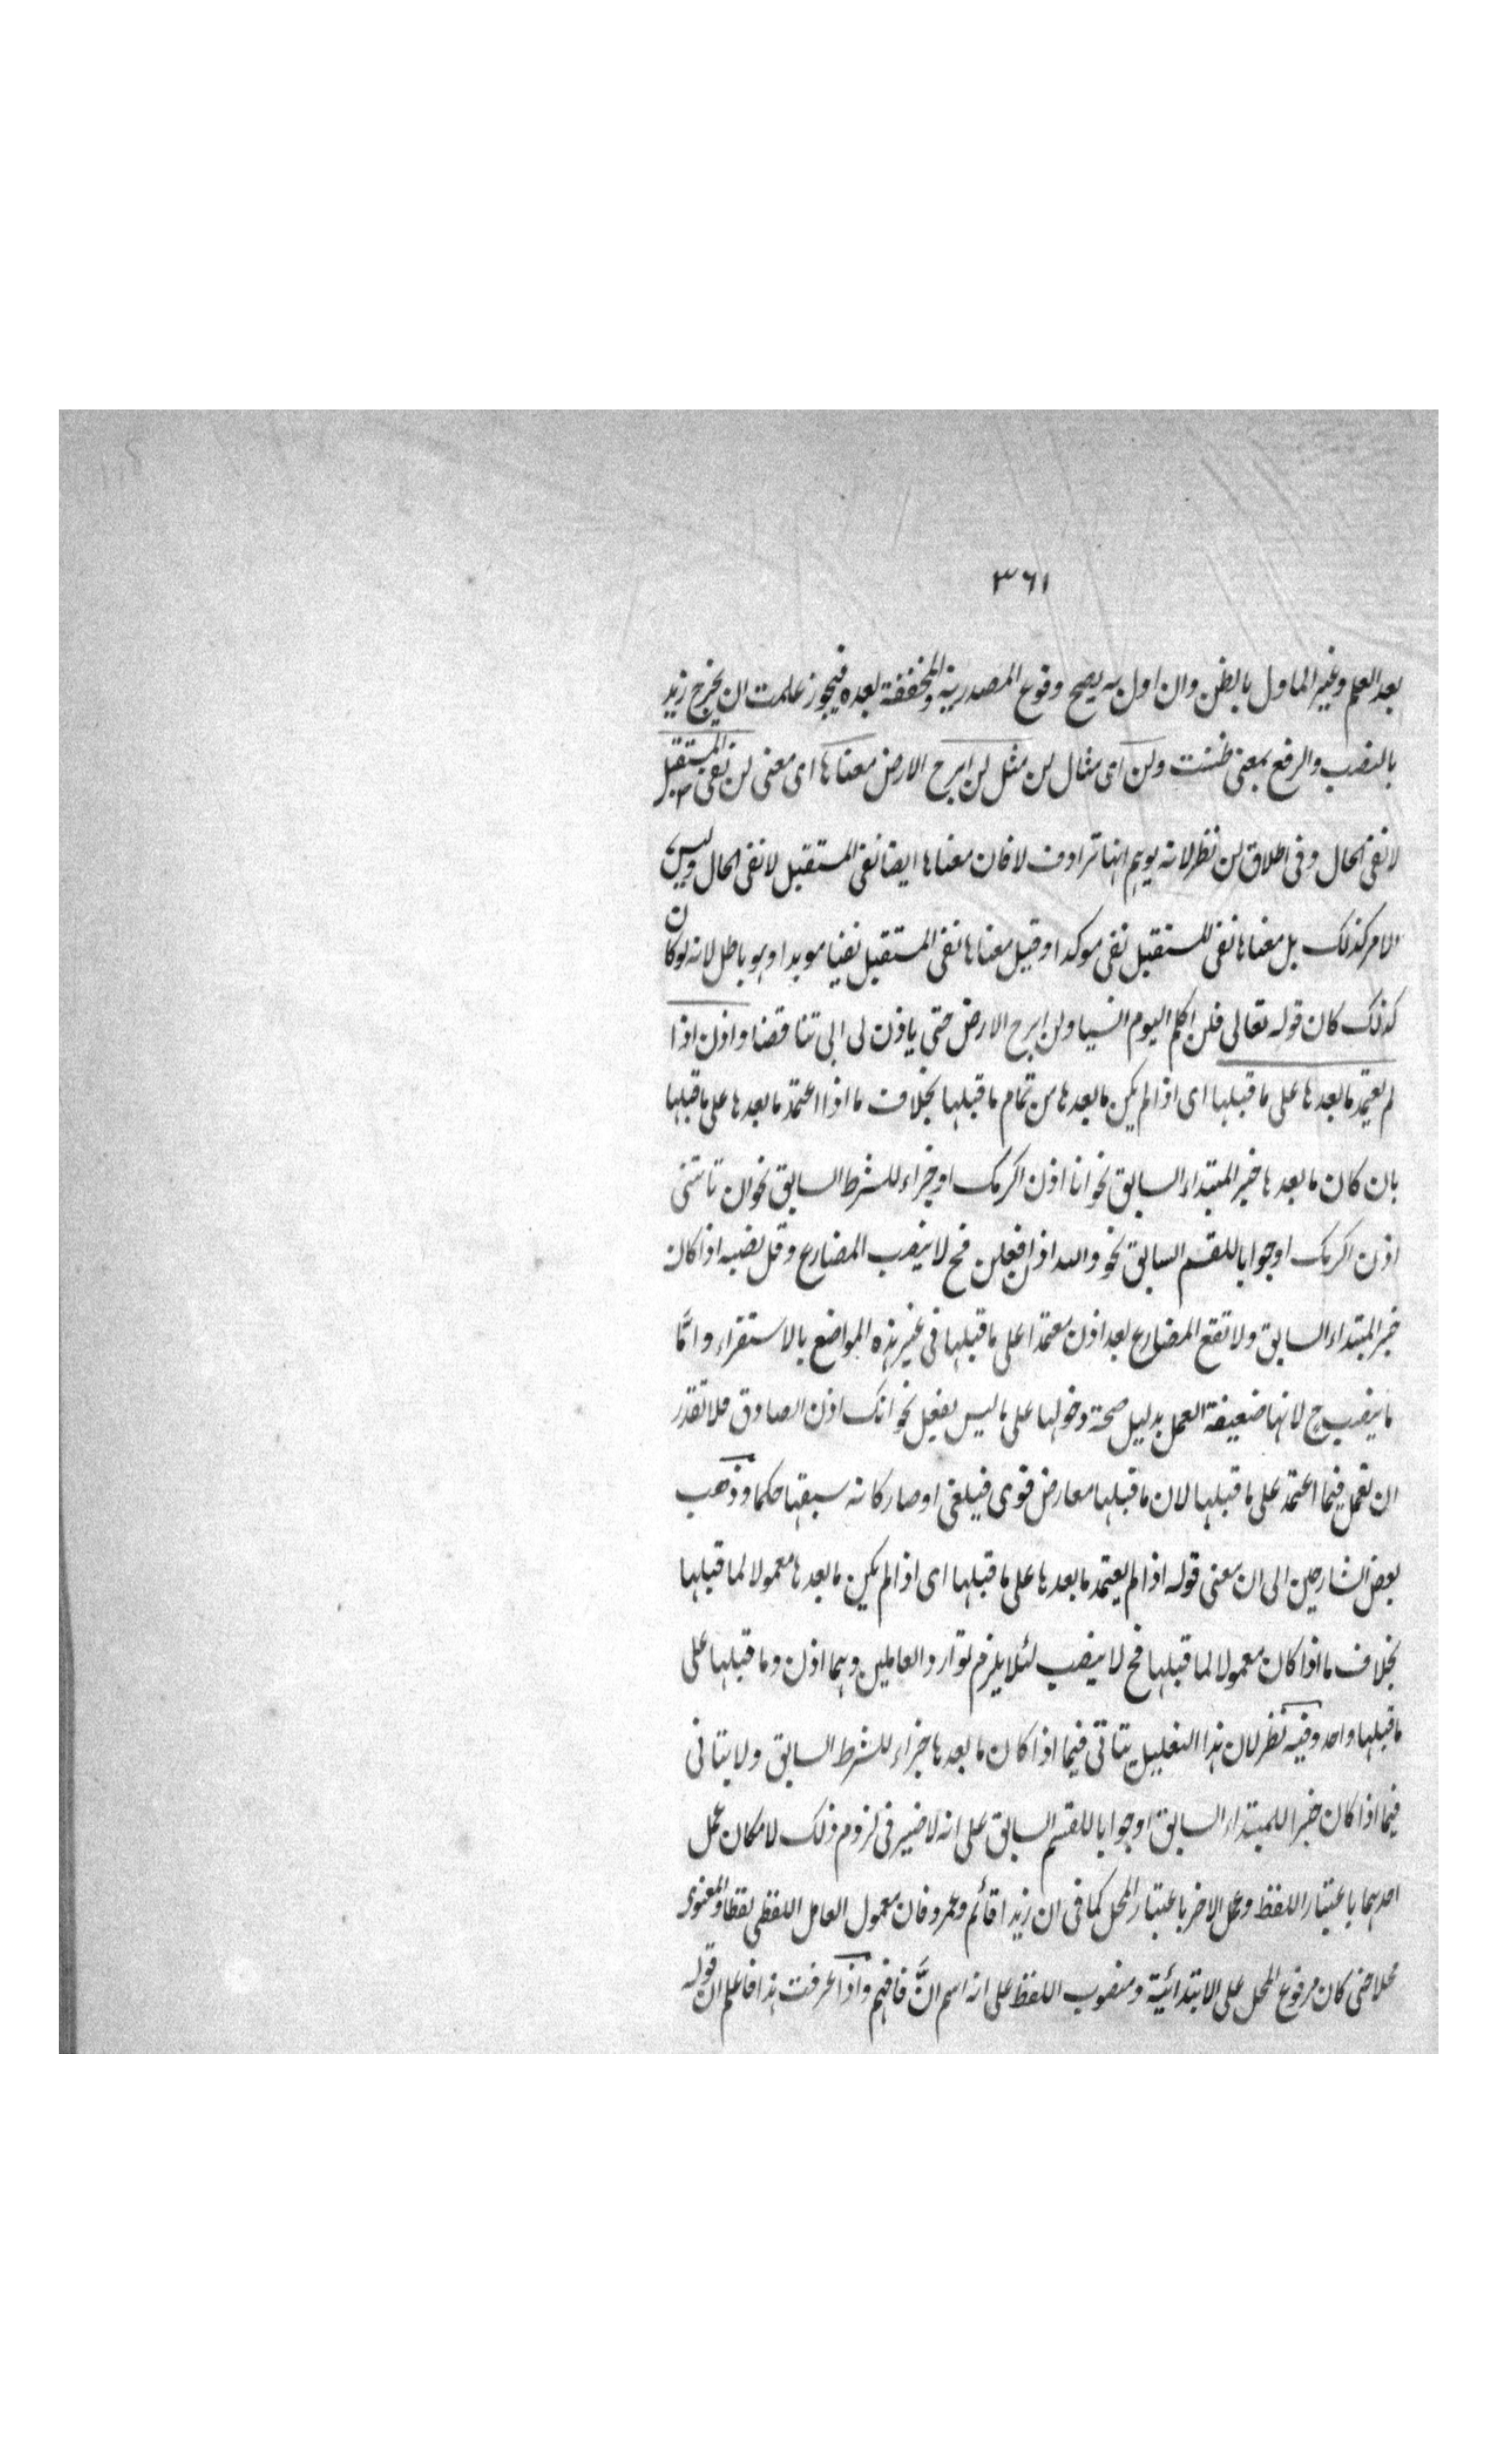 ٣٦١
بعد العلم وغير الماول بالظن وان اول به يصح وقوع المصدرية والمخففة بعده فيجوز علمت ان يخرج زيد
بالنصب والرفع بمعنى ظننت ولن اى مثال لن مثل لن ابرح الارض معناها اى معنى لن نفى المستقبل
لا نفى الحال وفى اطلاق لن نظر لانه يوهم انها ترادف لا فان معناها ايضا نفى المستقبل لا نفى الحال وليس
الامر كذلك بل معناها نفى المستقبل نفى موكدا وقيل معناها نفى المستقبل نفيا موبدا وهو باطل لانه لو كان
كذلك كان قوله تعالى فلن اكلم اليوم انسيا ولن ابرح الارض حتى ياذن لى ابى تناقضا واذن اذا
لم يعتمد ما بعدها على ما قبلها اى اذا لم يكن ما بعدها من تمام ما قبلها بخلاف ما اذا اعتمد ما بعدها على ما قبلها
بان كان ما بعدها خبر المبتداء السابق نحو انا اذن اكرمك او جزاء للشرط السابق نحو ان تاتنى
اذن اكرمك او جوابا للقسم السابق نحو والله اذن افعلن فح لا ينصب المضارع وقل نصبه اذا كان
خبر المبتداء السابق ولا تقع المضارع بعد اذن معتمدا على ما قبلها فى غير هذه المواضع بالاستقراء وانما
ما ينصب ح لانها ضعيفة العمل بدليل صحة دخولها على ما ليس بفعل نحو انك اذن الصادق فلا تقدر
ان تعمل فيما اعتمد على ما قبلها لان ما قبلها معارض قوى فيلغى او صار كانه سبقها حكما وذهب
بعض الشارحين الى ان معنى قوله اذا لم يعتمد ما بعدها على ما قبلها اى اذا لم يكن ما بعدها معمولا لما قبلها
بخلاف ما اذا كان معمولا لما قبلها فح لا ينصب لئلا يلزم توارد العاملين وهما اذن وما قبلها على
ما قبلها واحد وفيه نظر لان هذا التعليل يتاتى فيما اذا كان ما بعدها جزاء للشرط السابق ولا يتاتى
فيما اذا كان خبرا للمبتداء السابق او جوابا للقسم السابق على انه لا ضير فى لزوم ذلك لامكان عمل
احدهما باعتبار اللفظ وعمل الاخر باعتبار المحل كما فى ان زيدا قائم وعمرو فان معمول العامل اللفظى لفظا والمعنوى
محلا حتى كان مرفوع المحل على الابتدائية ومنصوب اللفظ على انه اسم انَّ فافهم واذا عرفت هذا فاعلم ان قوله